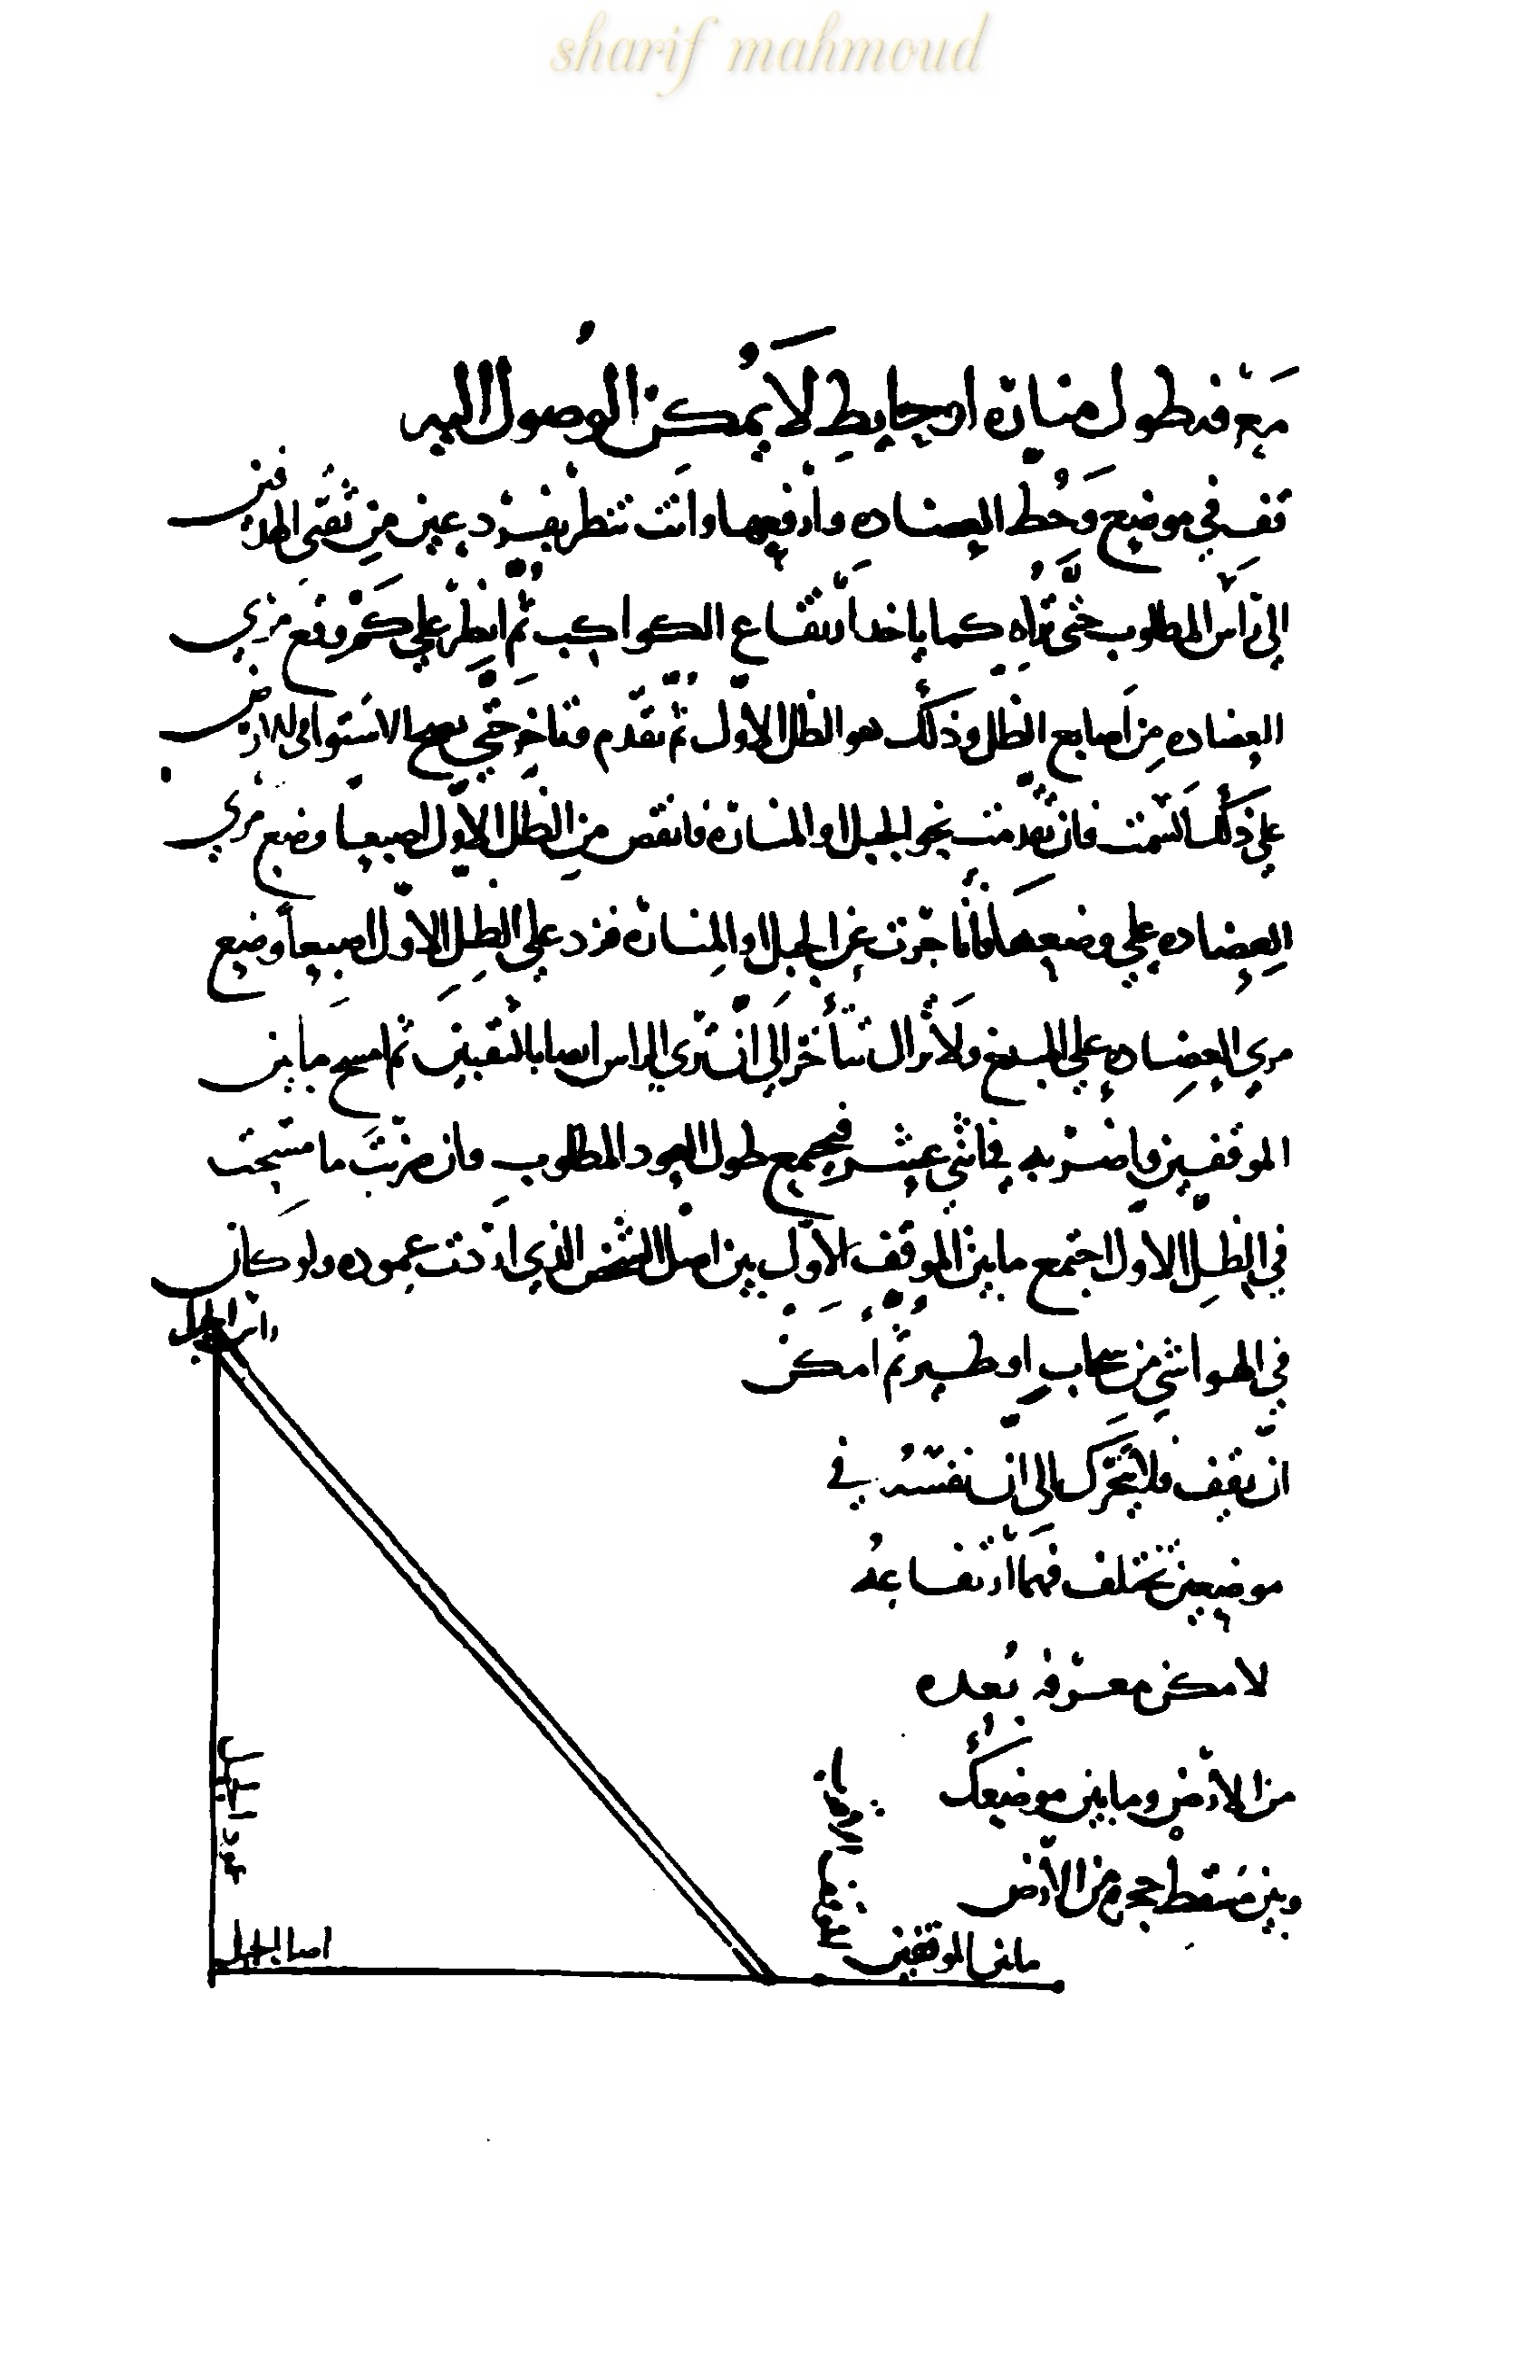 sharif mahmoud
معرفة طول منارة او حايط لا يمكن الوصول اليه
تقف في موضع وحط العضاده وارفعها وانت تنظر بفرد عين من ثقبتي الهدفتين
الى راس المطلوب حتى تراه كما ياخد ارتفاع الكواكب ثم انظر علي كم وقع مري
العضاده من اصابع الظل وذلك هو الظل الاول ثم تقدم وتاخر حتى يصح الاستوا في الارض
علي ذلك السمت فان تقدمت نحو الجبل او المنارة فانقص من الظل الاول اصبعا وضع مري
العضاده علي وضعها وان تاخرت عن الجبل او المنارة فزد علي الظل الاول اصبعا وضع
مري العضاده علي المبلغ ولا تزال تتأخر الي ان تري الراس ايضا بالثقبتين ثم امسح ما بين
الموقفين فاضربه في اثني عشر فيجمع طول العمود المطلوب وان ضربت ما مسحت
في الظل الاول اجتمع ما بين الموقف الاول بين اصل الشخص الذي اردت عموده ولو كان
في الهوا شي من سحاب او طير ثم امكن
ان يقف فلا يتحرك الى ان نفسه في
موضعين تختلف فيهما ارتفاعه
لامكن معرفة بعده
من الارض وما بين موضعك
وبين مسقط حجره من الارض
راس الجبل
عمود الجبل
اصل الجبل
ما بين الموقفين